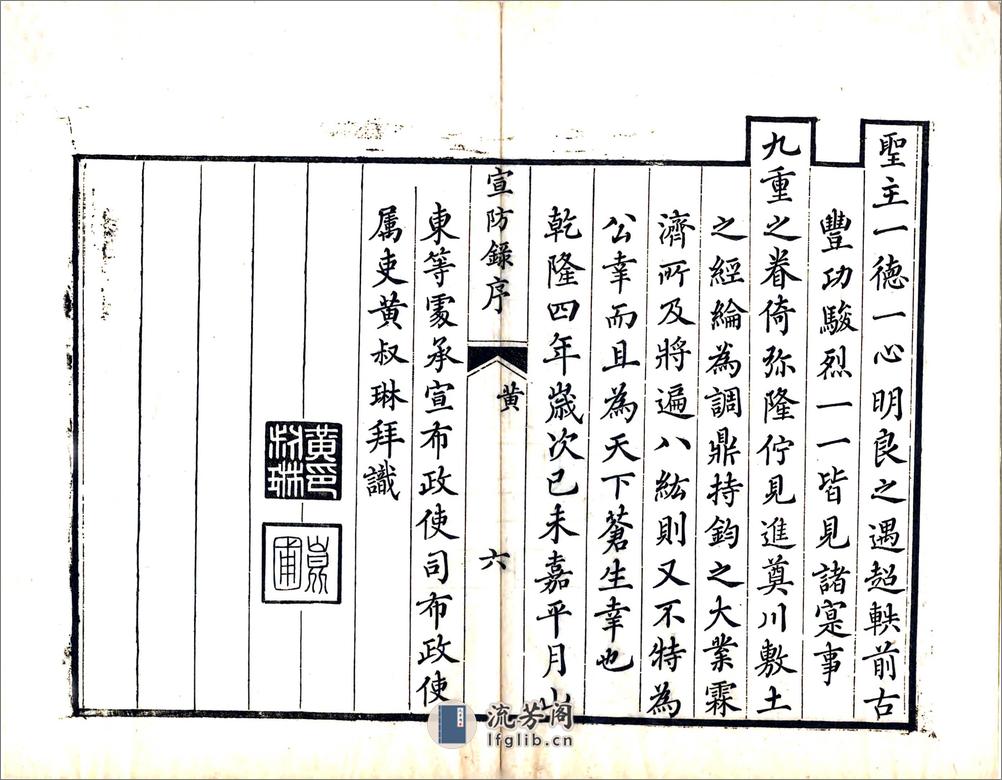 聖主一德一心明良之遇超軼前古
豐功駿烈一一皆見諸寔事
九重之眷倚弥隆佇見進奠川敷土
之經綸為調鼎持鈞之大業霖
濟所及將遍八紘則又不特為
公幸而且為天下蒼生幸也
乾隆四年歲次己未嘉平月山
宣防錄序
黄
六
東等處承宣布政使司布政使
属吏黄叔琳拜識
黃叔琳印
崑圃
流芳阁
lfglib.cn